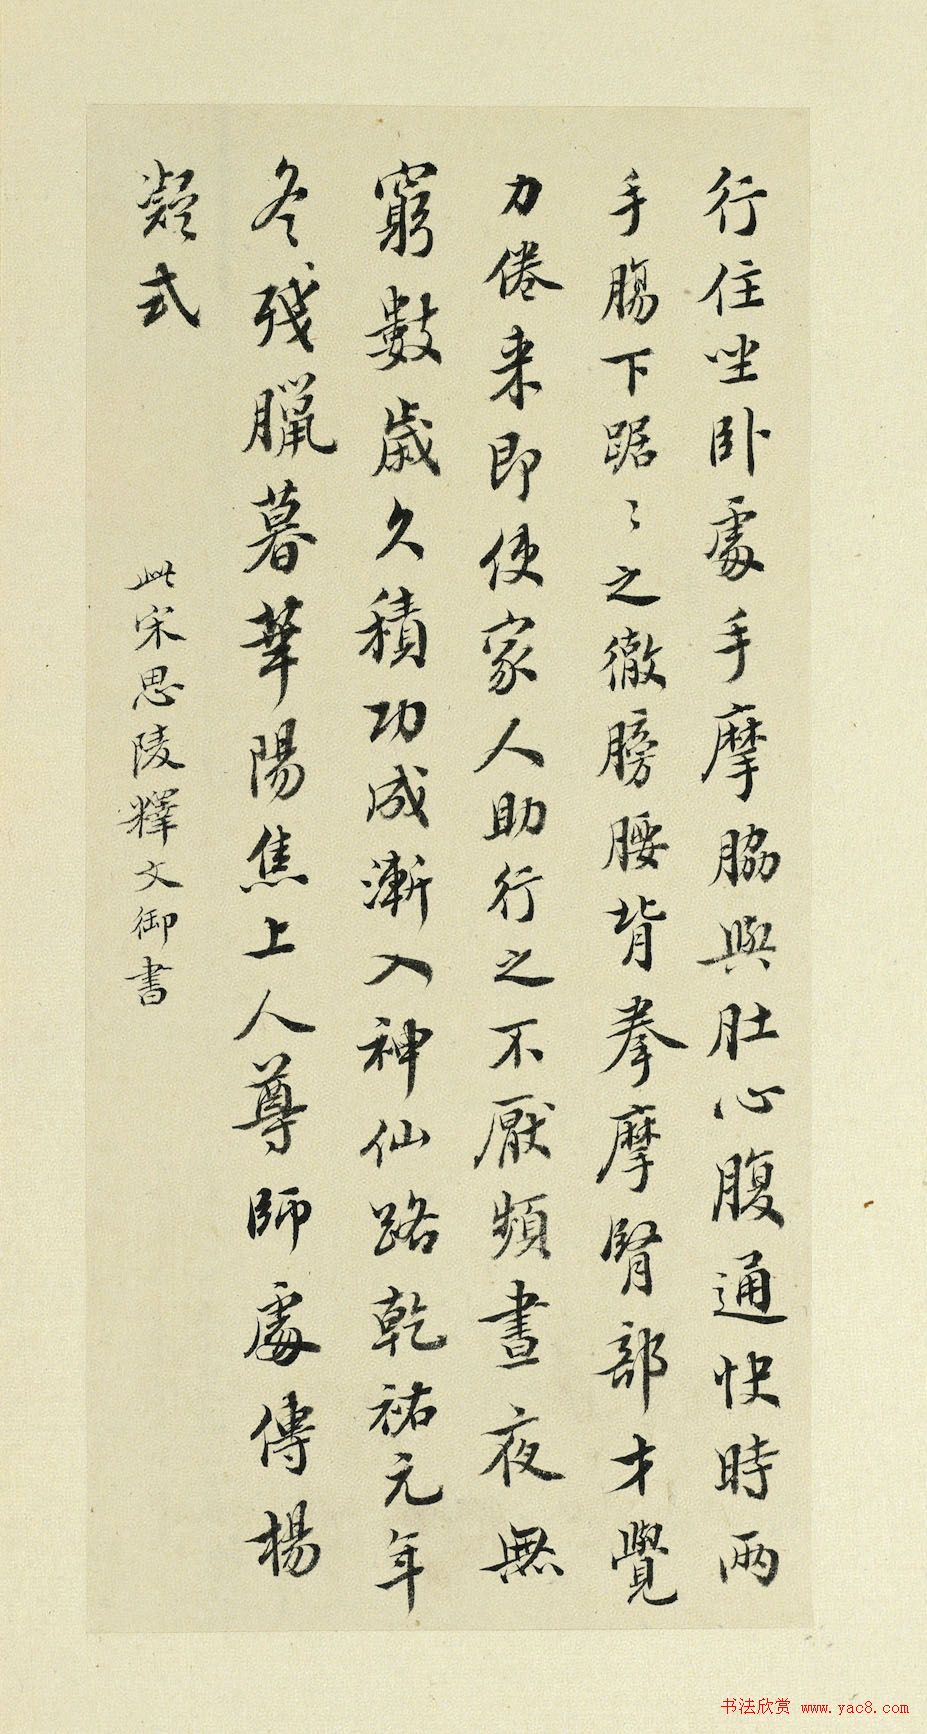 行住坐卧處手摩脇與肚心腹通快時兩
手腸下踞〻之徹膀腰背拳摩腎部才覺
力倦来即使家人助行之不厭頻晝夜無
窮數歲久積功成漸入神仙路乾祐元年
冬殘臘暮華陽焦上人尊師處傳楊
凝式
此宋思陵釋文御書
书法欣赏 www.yac8.com